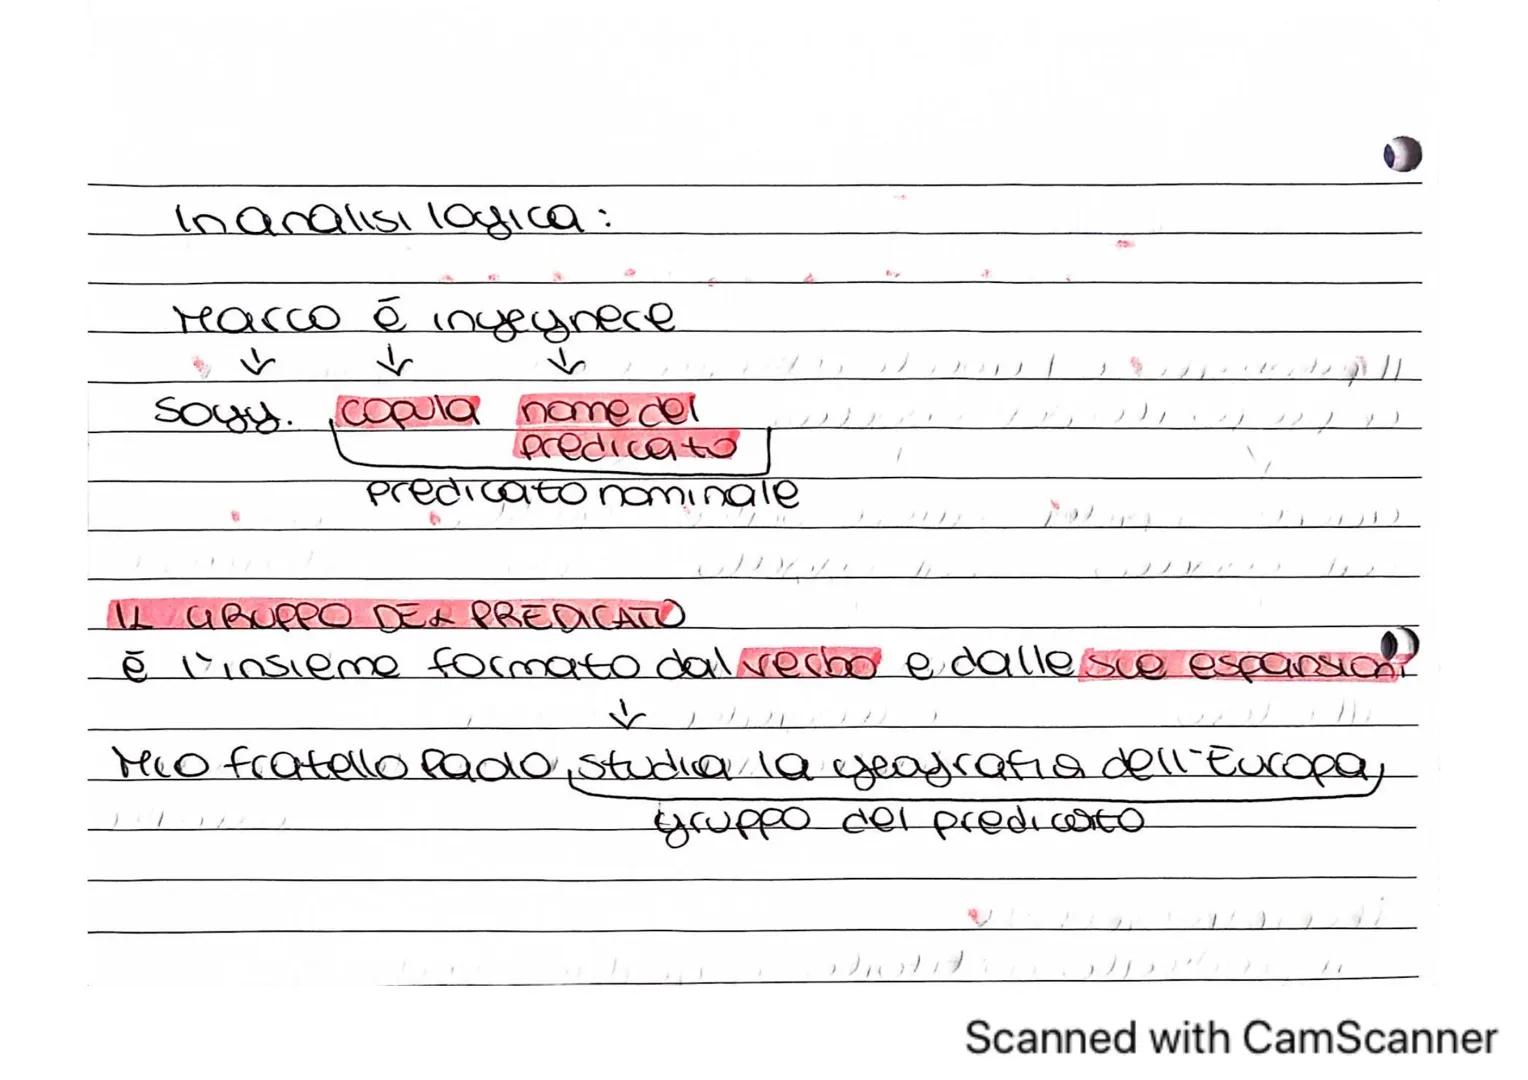 In analisi logica:
Marco è ingegnere
↓ ↓ ↓
Sogg. copula nome del
predicato
predicato nominale
IL GRUPPO DEL PREDICATO
è l'insieme formato dal verbo e dalle sue espansioni
↓
Mio fratello Paolo studia la geografia dell'Europa
gruppo del predicato
Scanned with CamScanner